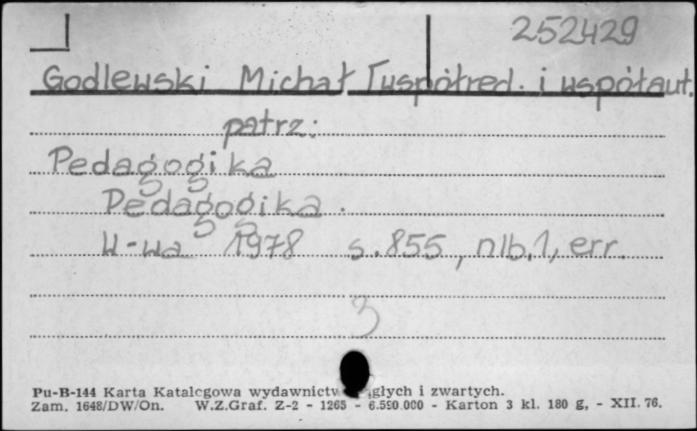 252429
Godlewski Michał [współred. i współaut.
patrz:
Pedagogika
Pedagogika.
W-wa 1978 s. 855, nlb. 1, err.
3
Pu-B-144 Karta Katalogowa wydawnictw i zwartych.
Zam. 1648/DW/On. W.Z.Graf. Z-2 - 1265 - 6.590.000 - Karton 3 kl. 180 g, - XII. 76.